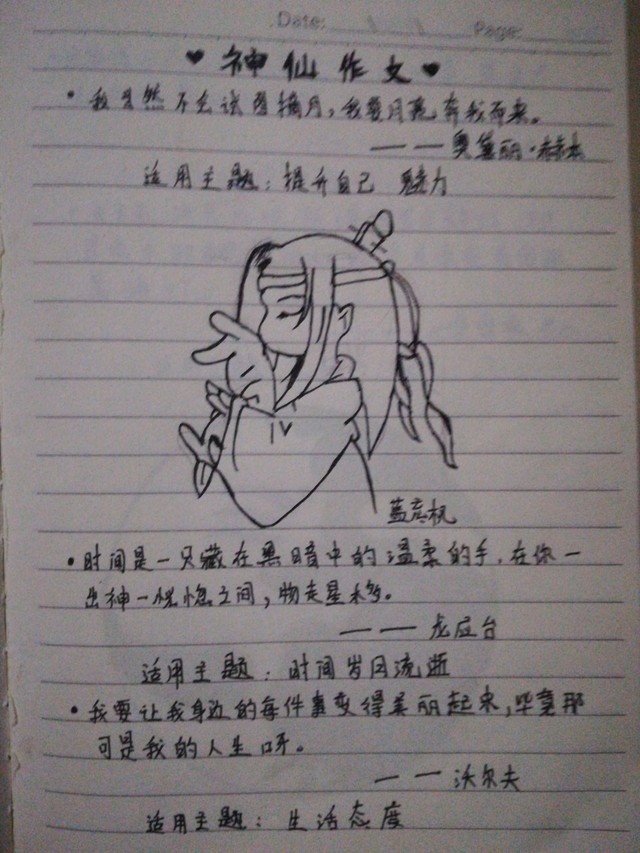 Date:
Page:
♥ 神仙作文 ♥
• 我当然不会试图摘月，我要月亮奔我而来。
——奥黛丽·赫本
适用主题：提升自己 魅力
蓝彦枫
• 时间是一只藏在黑暗中的温柔的手，在你一
出神一恍惚之间，物走星移。
——龙应台
适用主题：时间岁月流逝
• 我要让我身边的每件事变得美丽起来，毕竟那
可是我的人生呀。
——沃尔夫
适用主题：生活态度